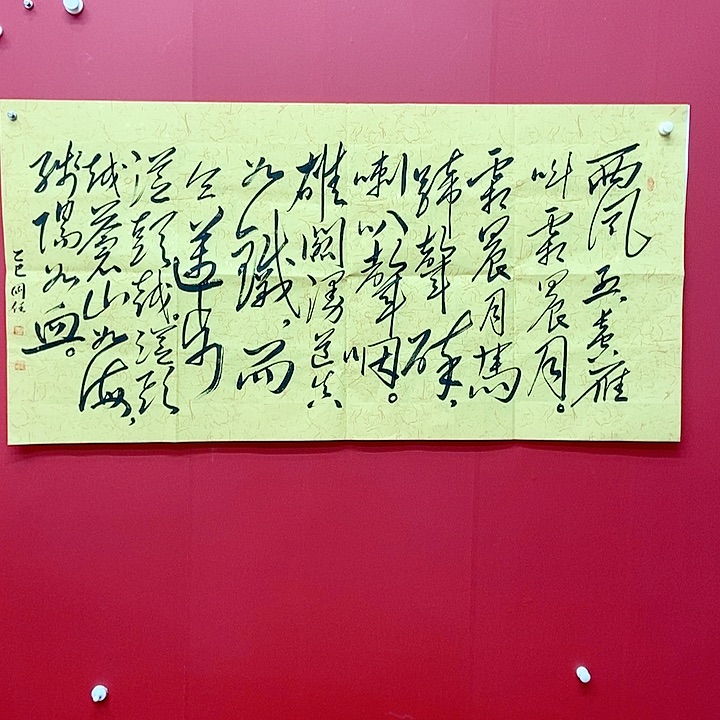 西風雁
叫霜晨月。
霜晨月馬
蹄聲碎，
喇叭聲咽。
雄關漫道真
如鐵，而
今邁步
從頭越。從頭
越蒼山如海，
殘陽如血。
乙巳